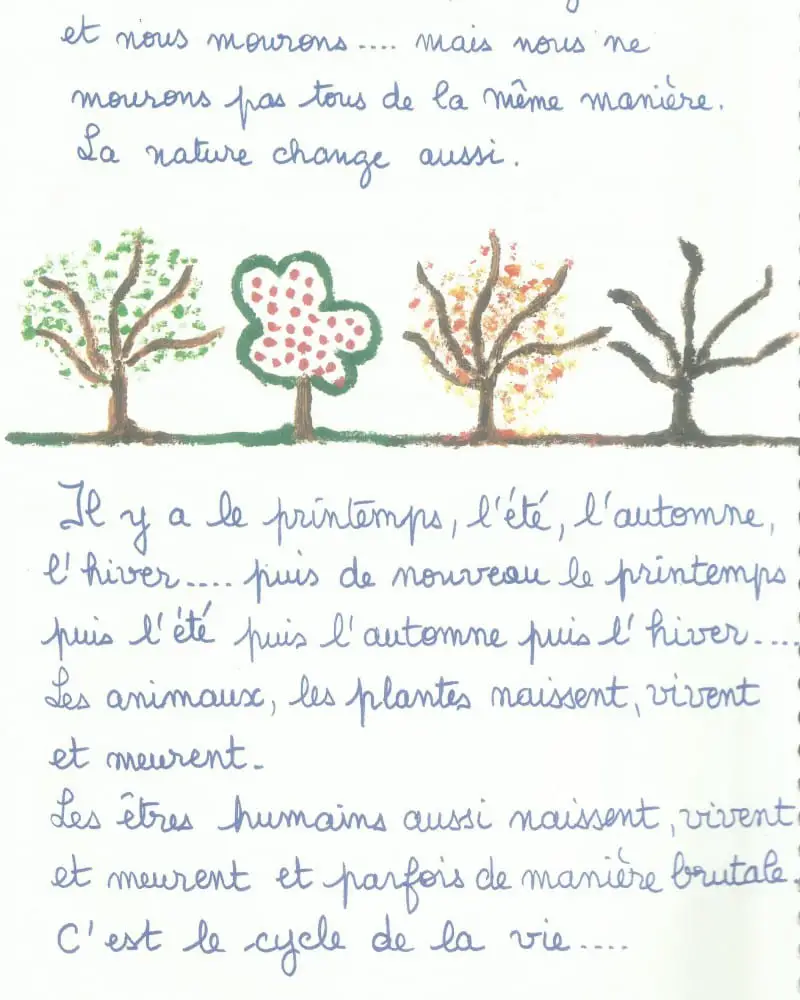 et nous mourons.... mais nous ne
mourons pas tous de la même manière.
La nature change aussi.
Il y a le printemps, l'été, l'automne,
l'hiver.... puis de nouveau le printemps
puis l'été puis l'automne puis l'hiver....
Les animaux, les plantes naissent, vivent
et meurent.
Les êtres humains aussi naissent, vivent
et meurent et parfois de manière brutale.
C'est le cycle de la vie....